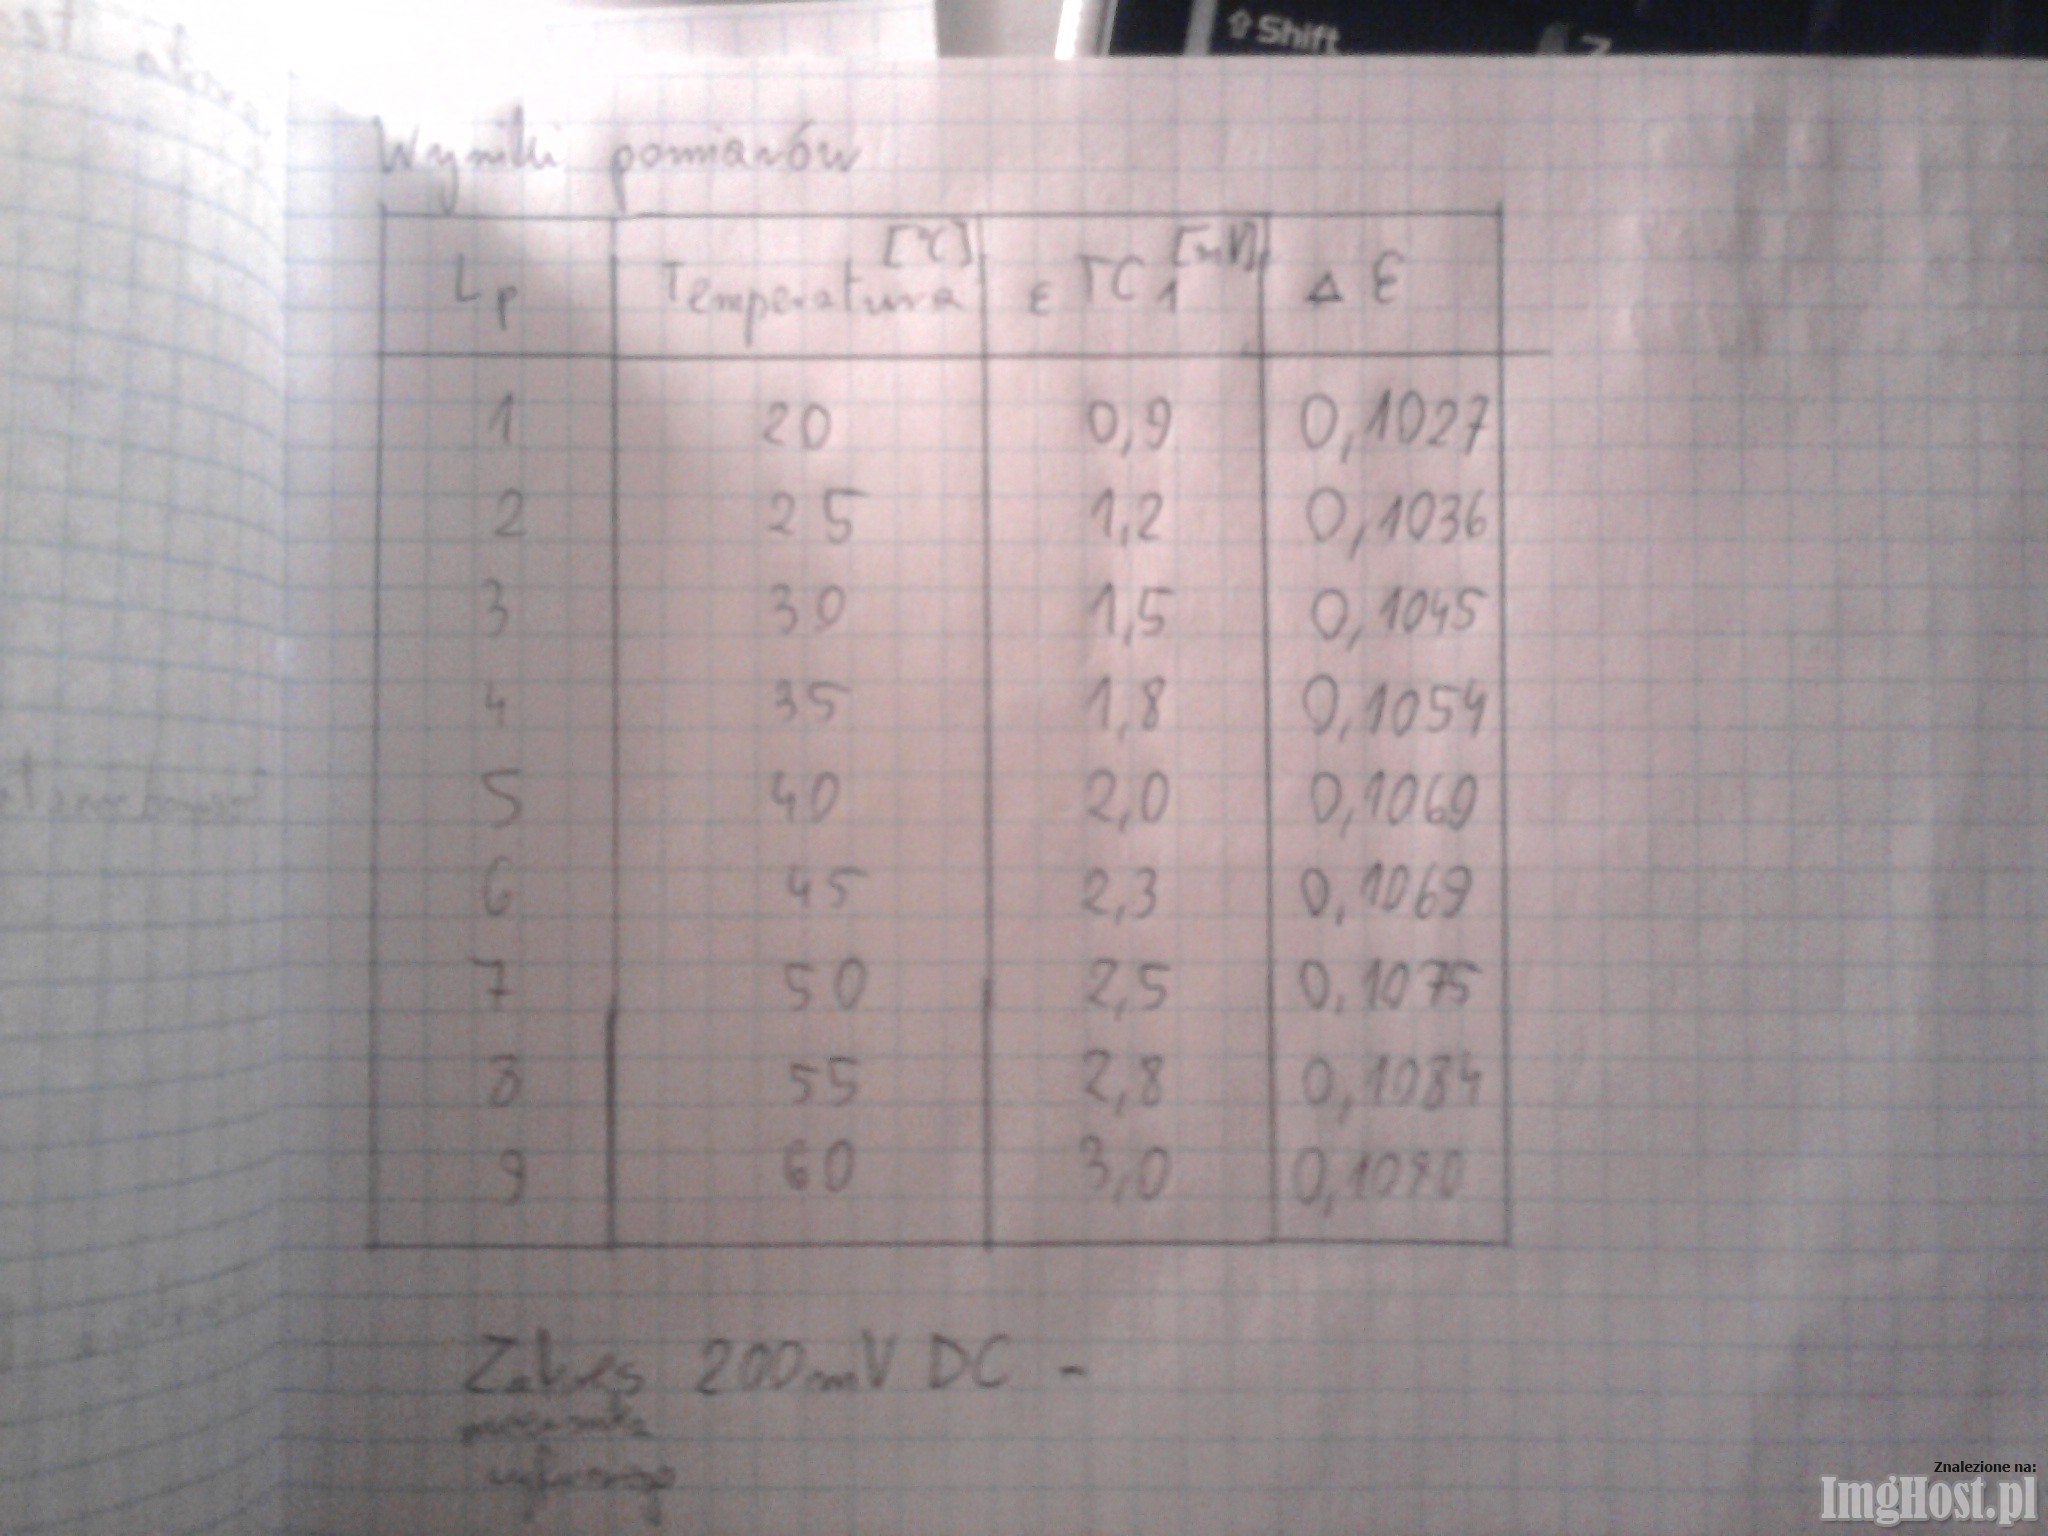 Shift
Wyniki pomiarów
Lp Temperatura [°C] ε TC1 [mV] Δ ε
1 20 0,9 0,1027
2 25 1,2 0,1036
3 30 1,5 0,1045
4 35 1,8 0,1054
5 40 2,0 0,1069
6 45 2,3 0,1069
7 50 2,5 0,1075
8 55 2,8 0,1084
9 60 3,0 0,1090
Zakres 200mV DC -
miernika
cyfrowego
Znalezione na:
ImgHost.pl